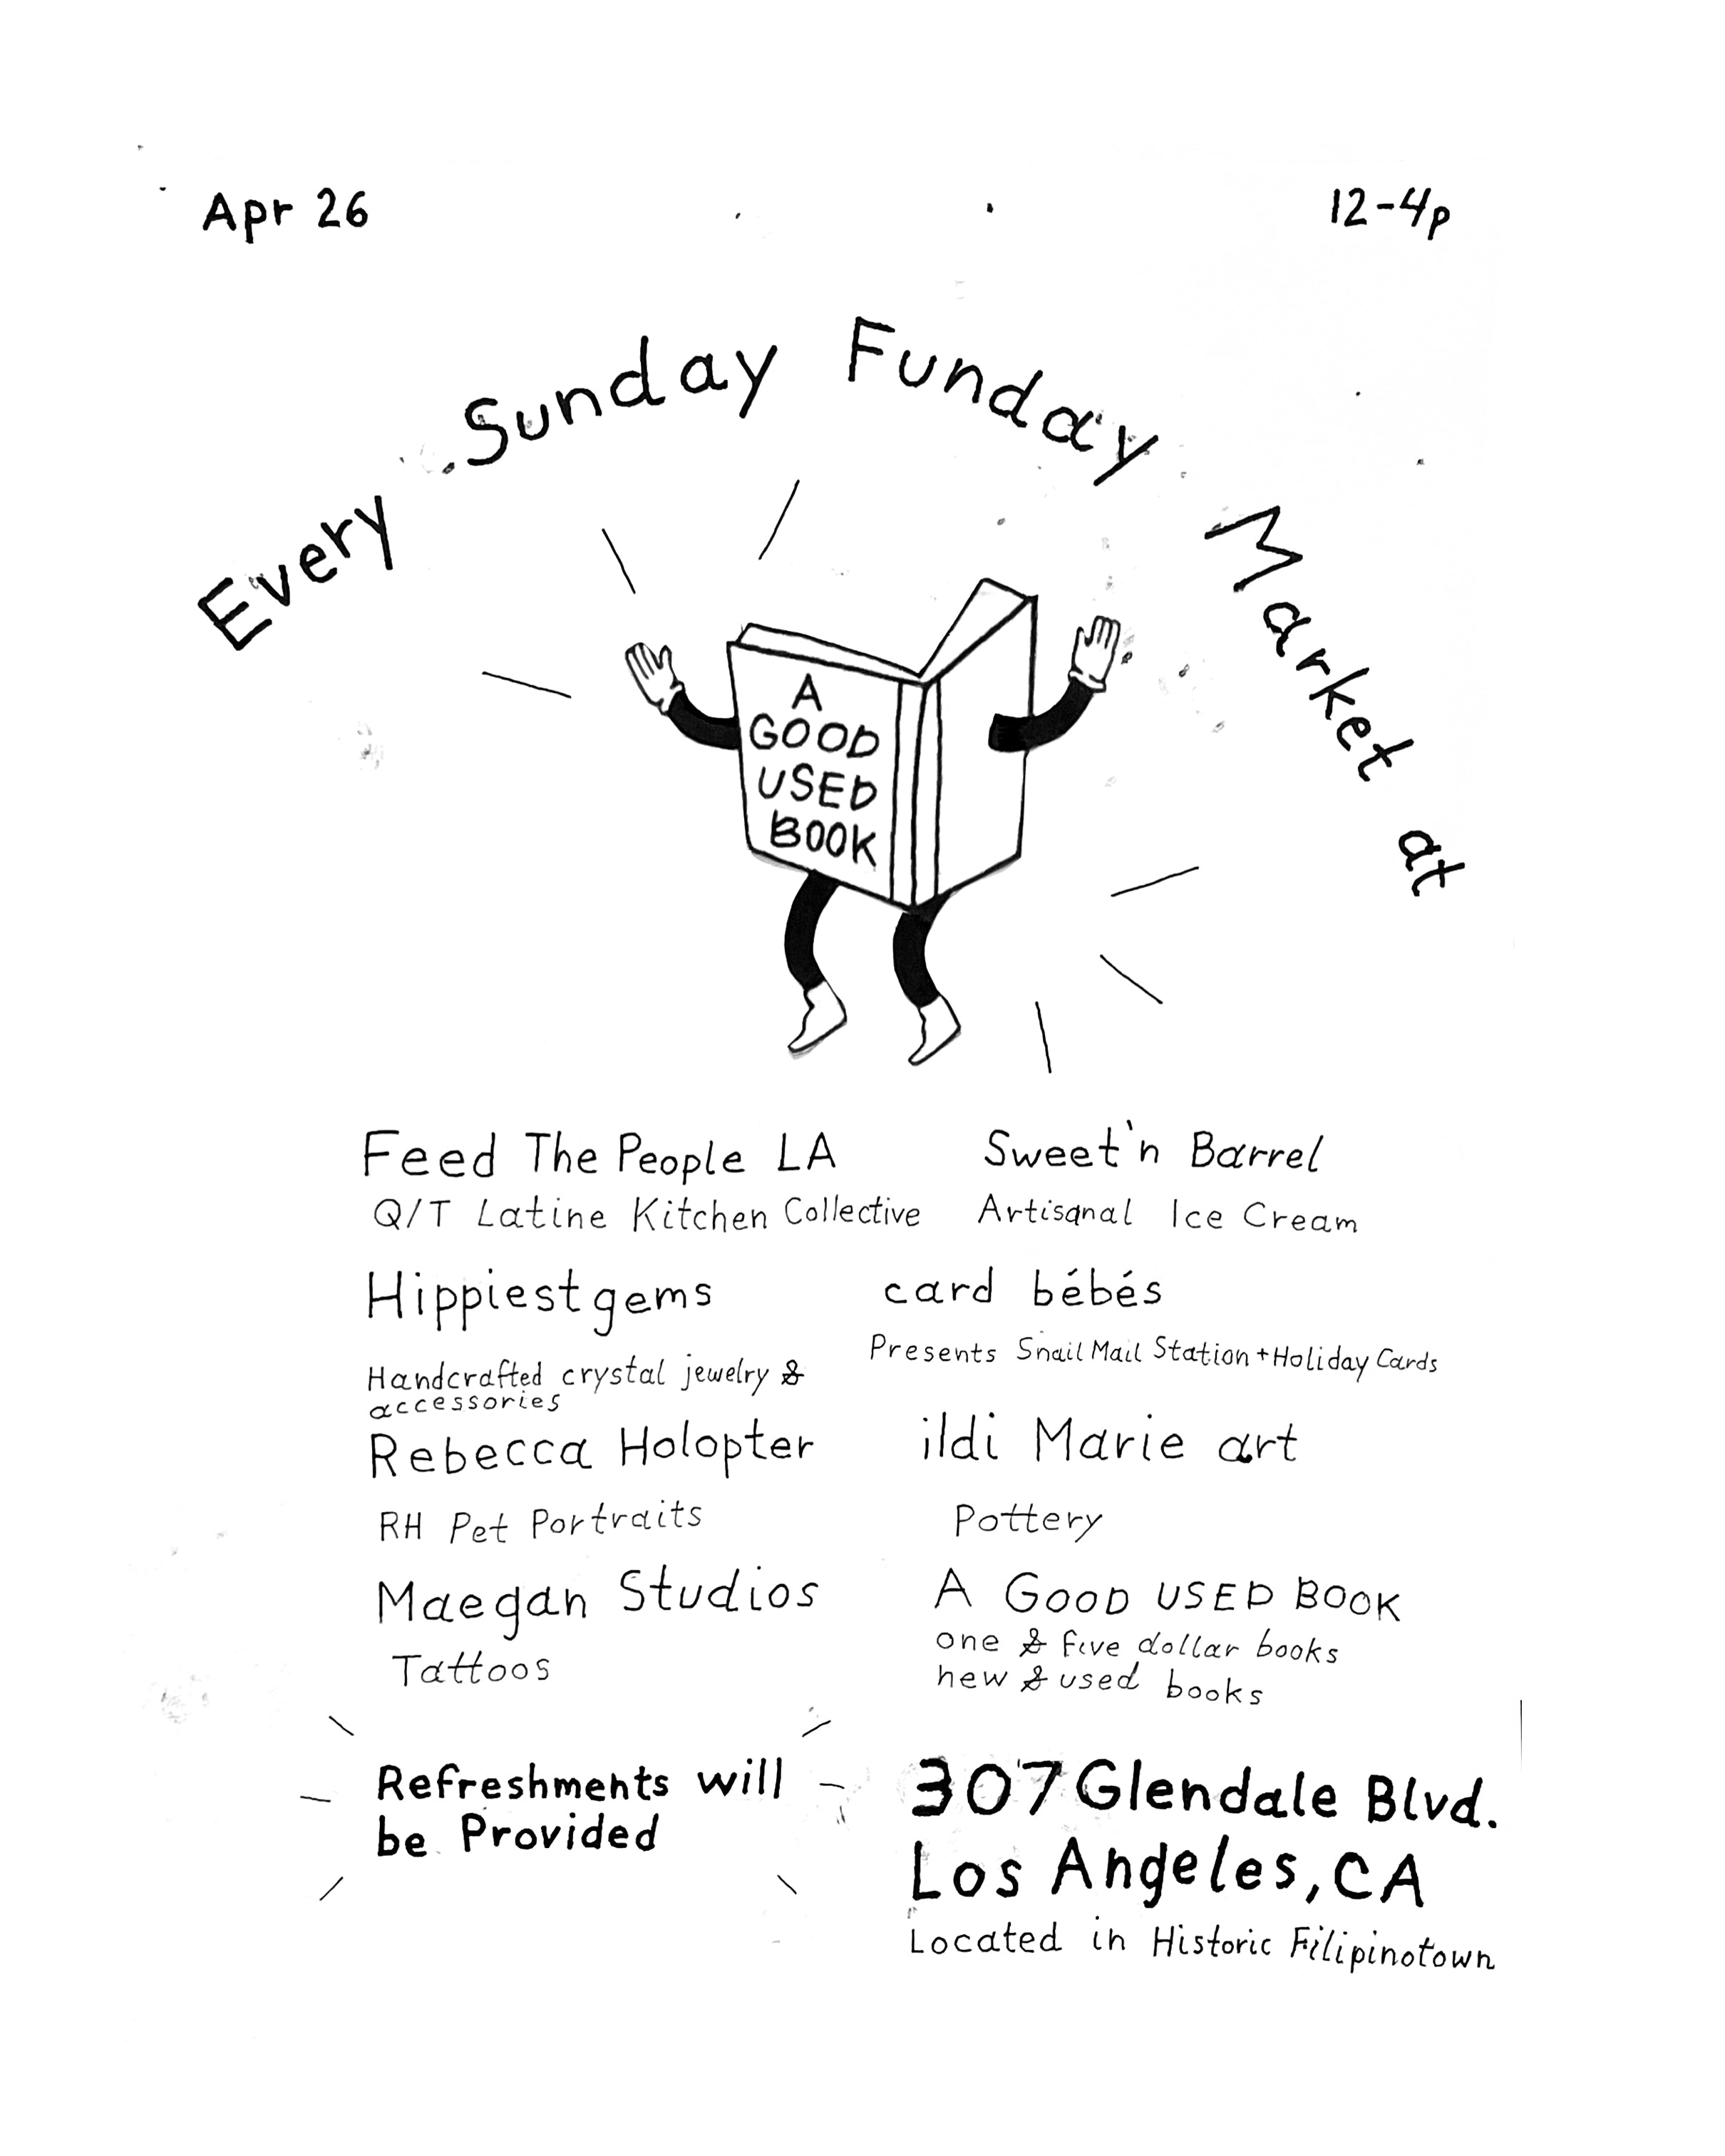 Apr 26
12-4p
Every Sunday Funday Market at
A
GOOD
USED
BOOK
Feed The People LA
Q/T Latine Kitchen Collective
Sweet'n Barrel
Artisanal Ice Cream
Hippiestgems
Handcrafted crystal jewelry &
accessories
card bébés
Presents Snail Mail Station + Holiday Cards
Rebecca Holopter
RH Pet Portraits
ildi Marie art
Pottery
Maegan Studios
Tattoos
A GOOD USED BOOK
one & five dollar books
new & used books
Refreshments will
be Provided
307 Glendale Blvd.
Los Angeles, CA
Located in Historic Filipinotown